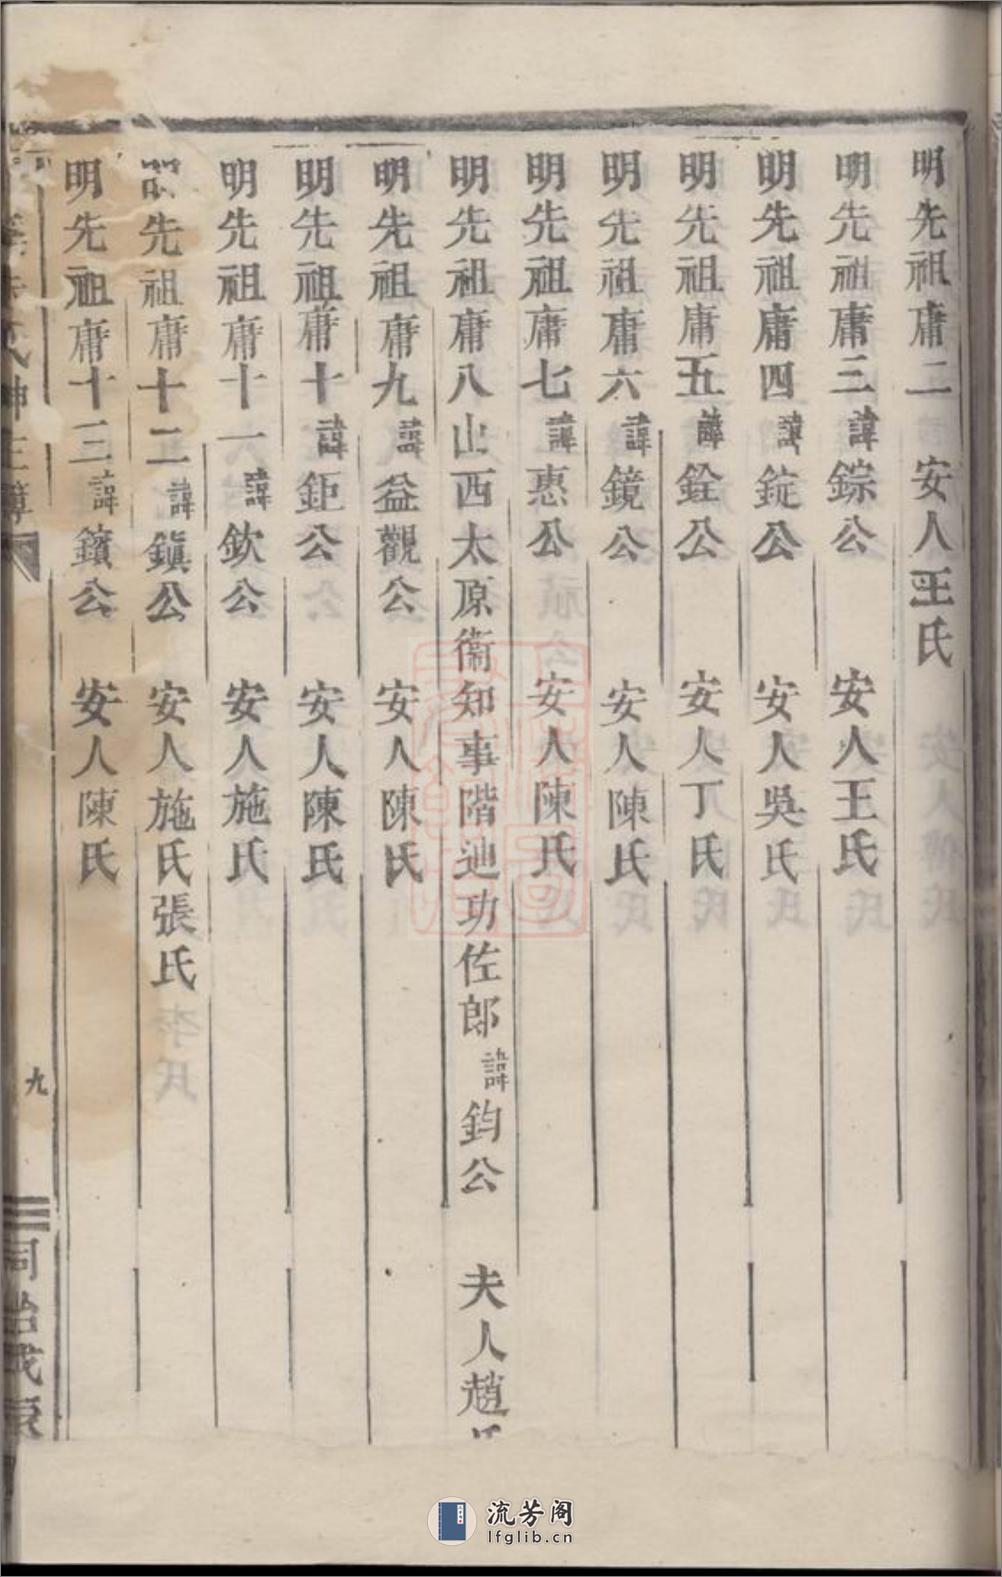 明先祖庸二 安人王氏
明先祖庸三諱錝公 安人王氏
明先祖庸四諱錠公 安人吳氏
明先祖庸五諱銓公 安人丁氏
明先祖庸六諱鏡公 安人陳氏
明先祖庸七諱惠公 安人陳氏
明先祖庸八山西太原衞知事階迪功佐郎諱鈞公 夫人趙氏
明先祖庸九諱益觀公 安人陳氏
明先祖庸十諱鉅公 安人陳氏
明先祖庸十一諱欽公 安人施氏
明先祖庸十二諱鎮公 安人施氏張氏
明先祖庸十三諱鑌公 安人陳氏
氏神主簿
九
同治戊辰
流芳阁
lfglib.cn